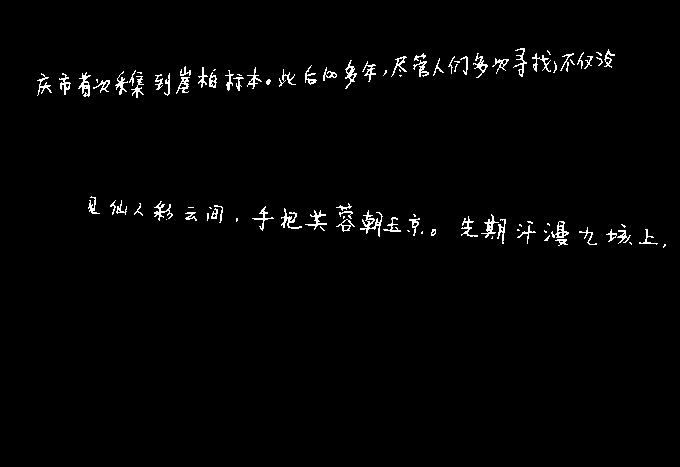 庆市首次采集到崖柏标本。此后100多年,尽管人们多次寻找,不仅没
见仙人彩云间,手把芙蓉朝玉京。先期汗漫九垓上,